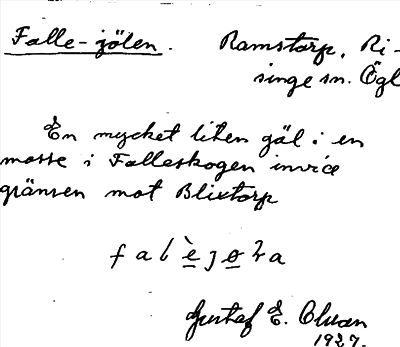 Falle-gölen. Ramstorp, Ri-
singe sn. Ögl
En mycket liten gäl i en
mosse i Falleskogen invid
gränsen mot Blixtorp
Gustaf E. Olsson
1927.